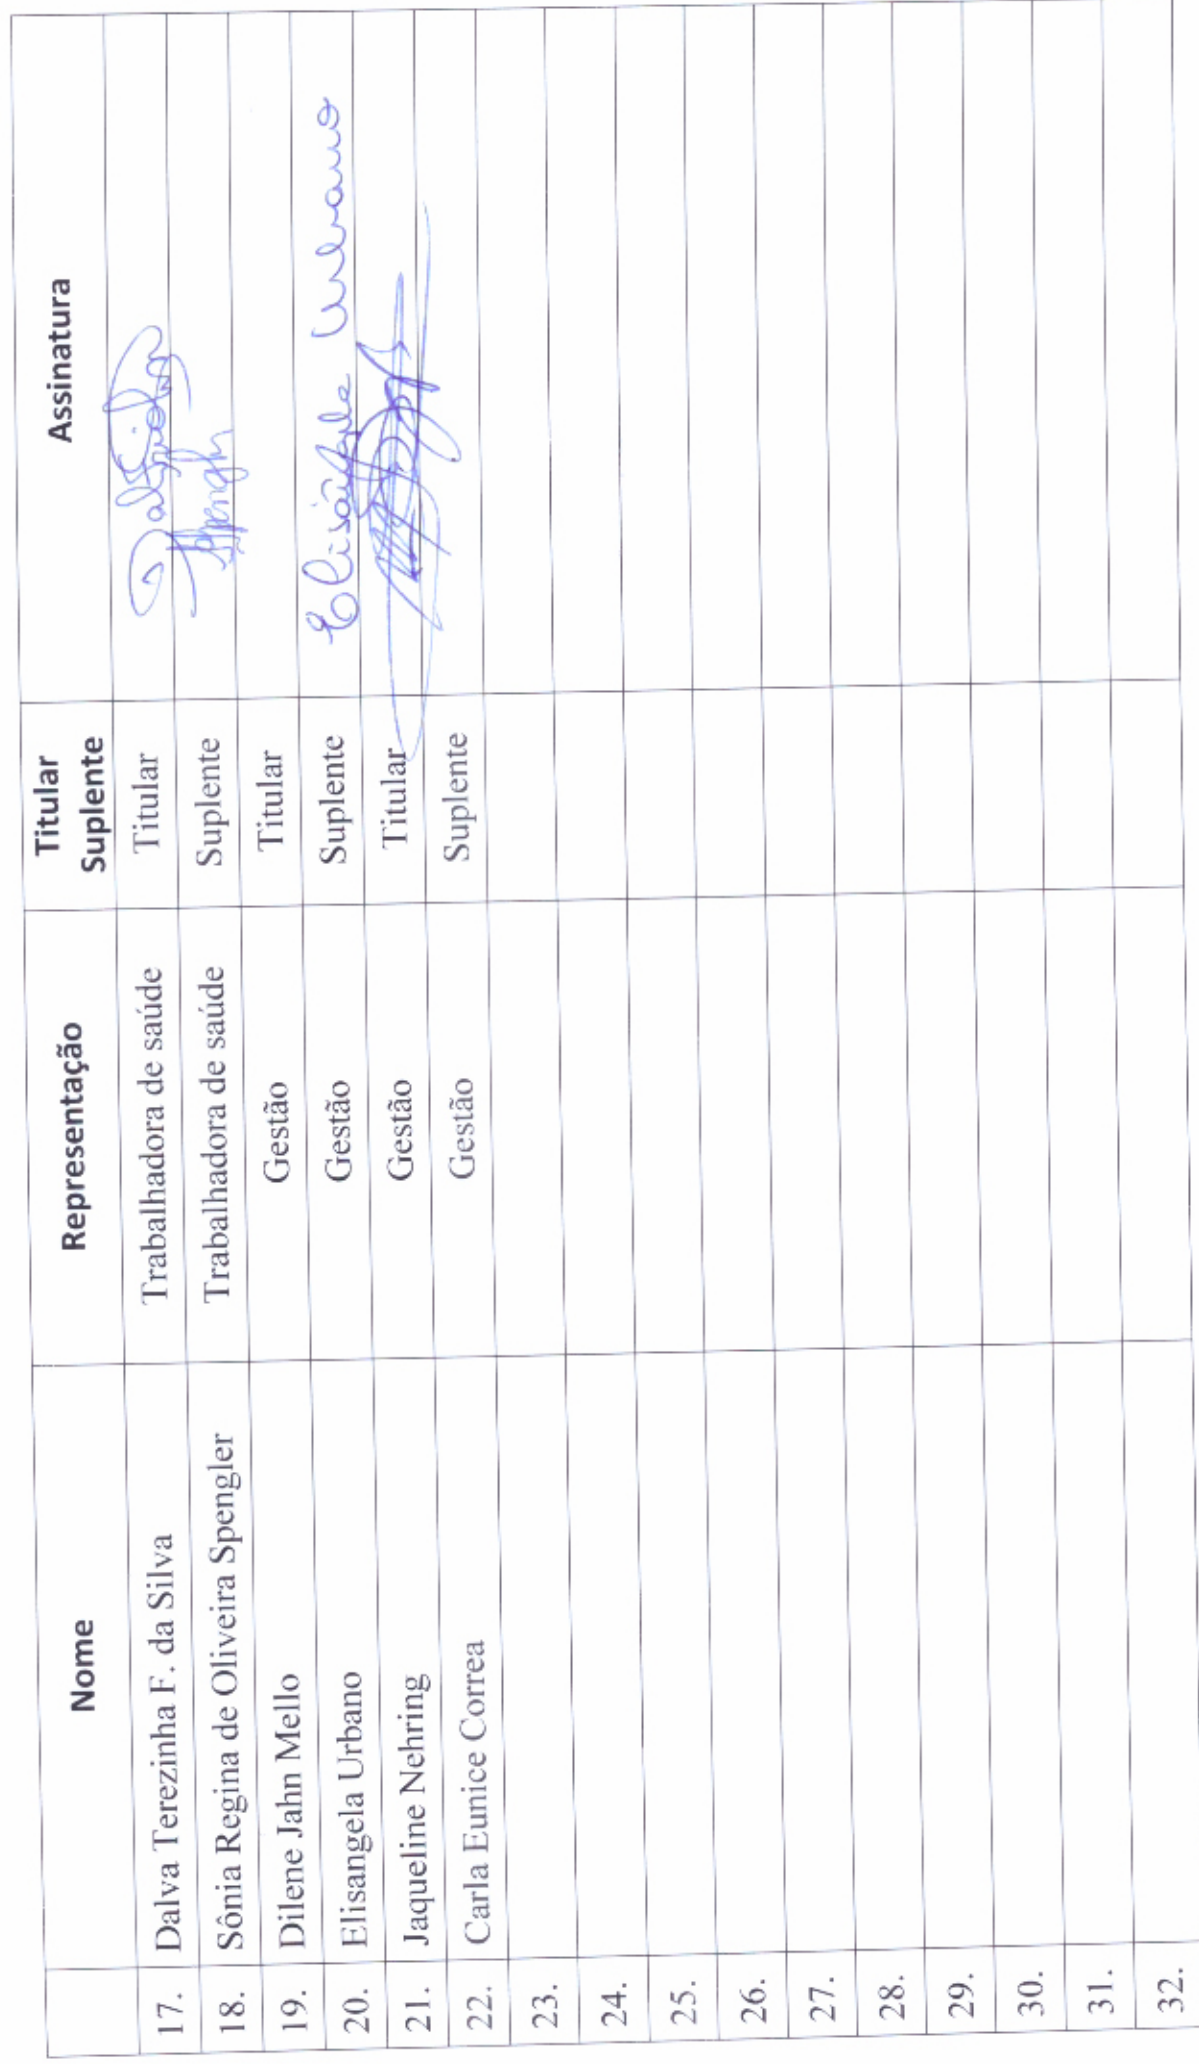 Nome Representação Titular Suplente Assinatura
17. Dalva Terezinha F. da Silva Trabalhadora de saúde Titular
18. Sônia Regina de Oliveira Spengler Trabalhadora de saúde Suplente
19. Dilene Jahn Mello Gestão Titular
20. Elisangela Urbano Gestão Suplente Elisângela Urbano
21. Jaqueline Nehring Gestão Titular
22. Carla Eunice Correa Gestão Suplente
23.
24.
25.
26.
27.
28.
29.
30.
31.
32.